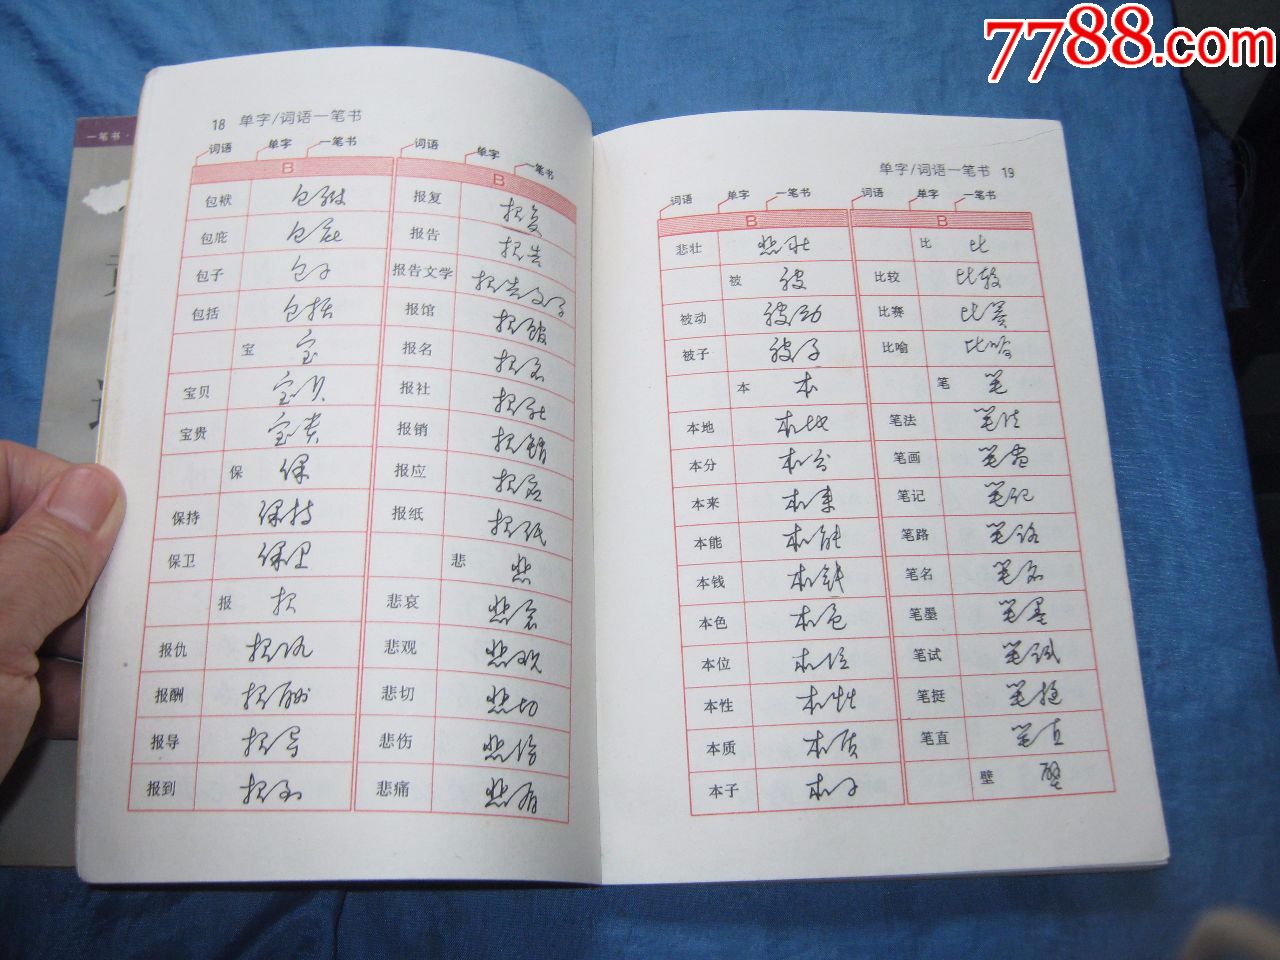 7788.com
一笔书
18 单字/词语一笔书
词语 单字 一笔书 词语 单字 一笔书
B B
包袱 包袱
包庇 包庇
包子 包子
包括 包括
宝 宝
宝贝 宝贝
宝贵 宝贵
保 保
保持 保持
保卫 保卫
报 报
报仇 报仇
报酬 报酬
报导 报导
报到 报到
报复 报复
报告 报告
报告文学 报告文学
报馆 报馆
报名 报名
报社 报社
报销 报销
报应 报应
报纸 报纸
悲 悲
悲哀 悲哀
悲观 悲观
悲切 悲切
悲伤 悲伤
悲痛 悲痛
单字/词语一笔书 19
词语 单字 一笔书 词语 单字 一笔书
B B
悲壮 悲壮
被 被
被动 被动
被子 被子
本 本
本地 本地
本分 本分
本来 本来
本能 本能
本钱 本钱
本色 本色
本位 本位
本性 本性
本质 本质
本子 本子
比 比
比较 比较
比赛 比赛
比喻 比喻
笔 笔
笔法 笔法
笔画 笔画
笔记 笔记
笔路 笔路
笔名 笔名
笔墨 笔墨
笔试 笔试
笔挺 笔挺
笔直 笔直
壁 壁